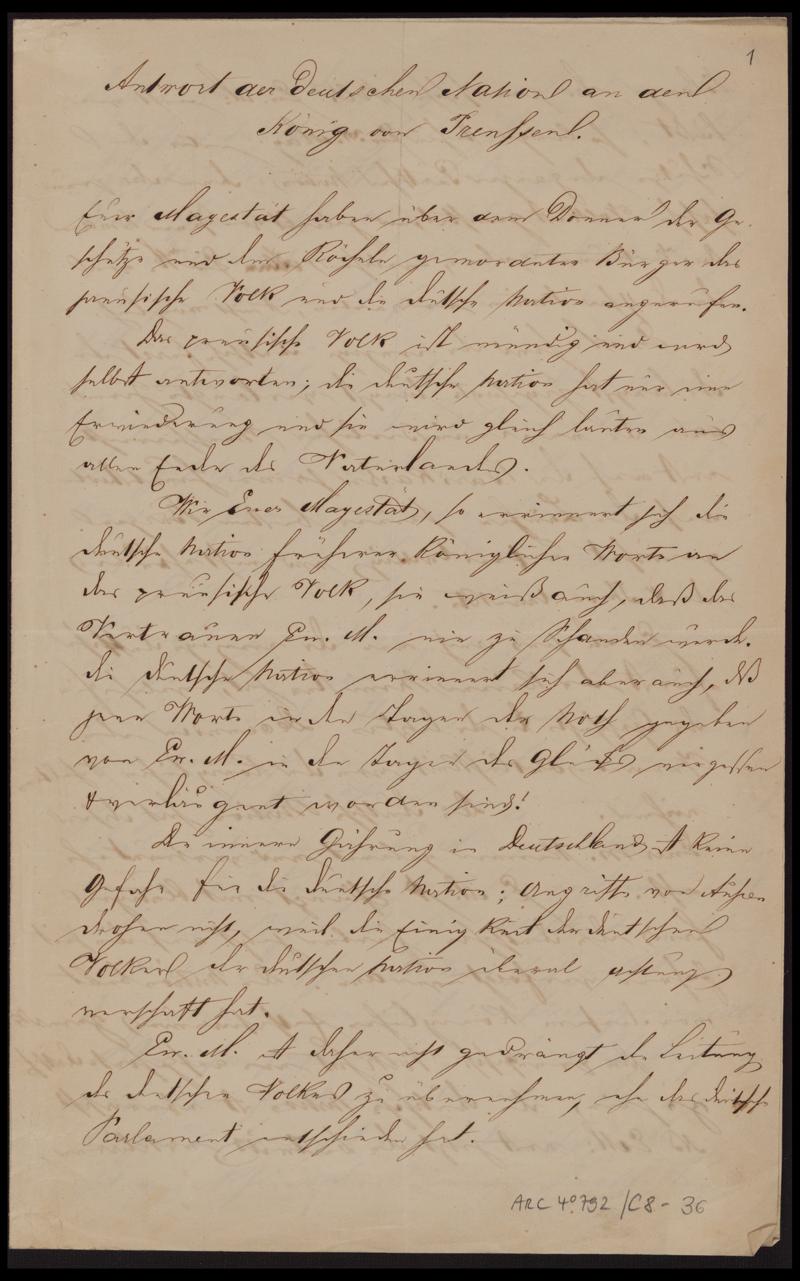 1
Antwort der Deutschen Nation an den
König von Preussen.
Euer Magestät haben über dem Donner der Ge-
schütze und dem Röcheln gemordeter Bürger das
preusische Volk und die deutsche Nation angerufen.
Das preusische Volk ist mündig und wird
selbst antworten; die deutsche Nation hat nur eine
Erwiederung und sie wird gleich lauten aus
allen Enden des Vaterlandes.
Wie Euer Magestät, so erinnert sich die
deutsche Nation früherer Königlicher Worte an
das preusische Volk, sie weiß auch, daß das
Vertrauen Ew. M. nie zu Schanden werde.
die deutsche Nation erinnert sich aber auch, dß
jene Worte in den Tagen der Noth gegeben
von Ew. M. in den Tagen des Glücks vergessen
& verläugnet worden sind!
Die innere Gährung in Deutschland ist keine
Gefahr für die deutsche Nation; Angriffe von Außen
drohen nicht, weil die Einigkeit der deutschen
Völker der deutschen Nation überal achtung
verschafft hat.
Ew. M. ist daher nicht gedrängt die Leitung
des deutschen Volkes zu übernehmen, ehe das deutsche
Parlament entschieden hat.
ARC 4º. 792 /C8 - 36